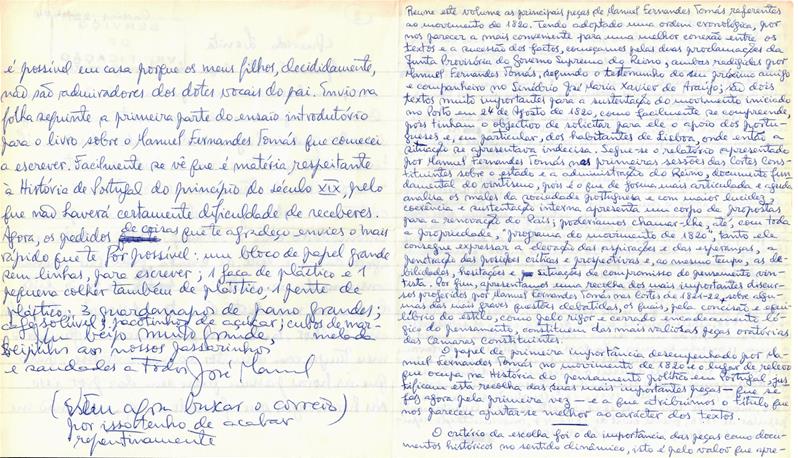 é possível em casa porque os meus filhos, decididamente,
não são admiradores dos dotes vocais do pai. Envio na
folha seguinte a primeira parte do ensaio introdutório
para o livro sobre o Manuel Fernandes Tomás que comecei
a escrever. Facilmente se vê que é matéria respeitante
à História de Portugal do princípio do século XIX, pelo
que não haverá certamente dificuldade de receberes.
Agora, os pedidos de coisas que te agradeço envies o mais
rápido que te for possível: um bloco de papel grande
sem linhas, para escrever; 1 faca de plástico e 1
pequena colher também de plástico; 1 pente de
plástico; 3 guardanapos de pano grandes;
café solúvel; pacotinhos de açúcar; cubos de marmelada
Um beijo muito grande,
beijinhos aos nossos passarinhos
e saudades a todos José Manuel
(Estão agora buscar o correio)
por isso tenho de acabar
repentinamente
Reúne este volume as principais peças de Manuel Fernandes Tomás referentes
ao movimento de 1820. Tendo adoptado uma ordem cronológica, por
nos parecer a mais conveniente para uma melhor conexão entre os
textos e a sucessão dos factos, começamos pelas duas proclamações da
Junta Provisória do Governo Supremo do Reino, ambas redigidas por
Manuel Fernandes Tomás, segundo o testemunho do seu próximo amigo
e companheiro no Sinédrio José Maria Xavier de Araújo; são dois
textos muito importantes para a sustentação do movimento iniciado
no Porto em 24 de Agosto de 1820, como facilmente se compreende,
pois tinham o objectivo de solicitar para ele o apoio dos portu-
gueses e, em particular, dos habitantes de Lisboa, onde então a
situação se apresentava indecisa. Segue-se o relatório apresentado
por Manuel Fernandes Tomás nas primeiras sessões das Cortes Cons-
tituintes sobre o estado e a administração do Reino, documento fun-
damental do vintismo, pois é o que de forma mais articulada e aguda
analisa os males da sociedade portuguesa e com maior lucidez,
coerência e sustentação interna apresenta um corpo de propostas
para a renovação do País; poderíamos chamar-lhe, até, com toda
a propriedade, "programa do movimento de 1820", tanto ele
consegue expressar a elevação das aspirações e das esperanças, a
penetração das posições críticas e prospectivas e, ao mesmo tempo, as de-
bilidades, hesitações e situações de compromisso do pensamento vin-
tista. Por fim, apresentamos uma recolha dos mais importantes discur-
sos proferidos por Manuel Fernandes Tomás nas Cortes de 1821-22, sobre algu-
mas das mais graves questões debatidas, os quais, pelo conciso e equi-
líbrio do estilo, como pelo rigor e cerrado encadeamento ló-
gico do pensamento, constituem das mais valiosas peças oratórias
das Câmaras Constituintes.
O papel de primeira importância desempenhado por Ma-
nuel Fernandes Tomás no movimento de 1820 e o lugar de relevo
que ocupa na História do pensamento político em Portugal, jus-
tificam esta recolha das suas mais importantes peças — que se
faz agora pela primeira vez — e a que atribuímos o título que
nos pareceu ajustar-se melhor ao carácter dos textos.
O critério da escolha foi o da importância das peças como docu-
mentos históricos no sentido dinâmico, isto é, pelo valor que apre-